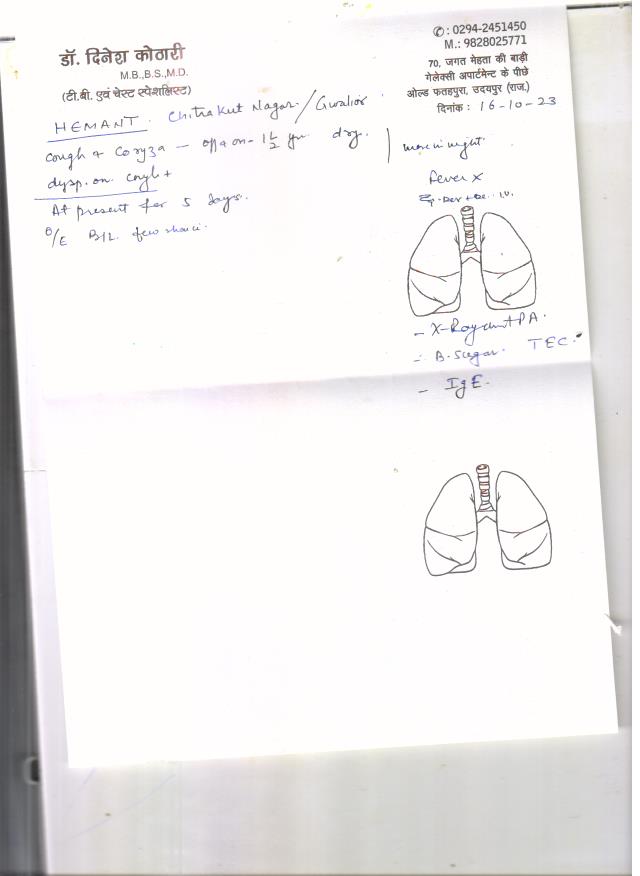 डॉ. दिनेश कोठारी
M.B.,B.S.,M.D.
(टी.बी. एवं चेस्ट स्पेशलिस्ट)
✆ : 0294-2451450
M.: 9828025771
70, जगत मेहता की बाड़ी
गेलेक्सी अपार्टमेन्ट के पीछे
ओल्ड फतहपुरा, उदयपुर (राज.)
दिनांक : 16-10-23
HEMANT. Chitrakut Nagar / Gwalior
Cough & Coryza — off & on - 1 1/2 yr dry. | more in night
dysp. on cough +
Fever x
At present for 5 days.
O/E B/L few rhonchi
- X-Ray chest PA.
- B. Sugar. TEC
- IgE.